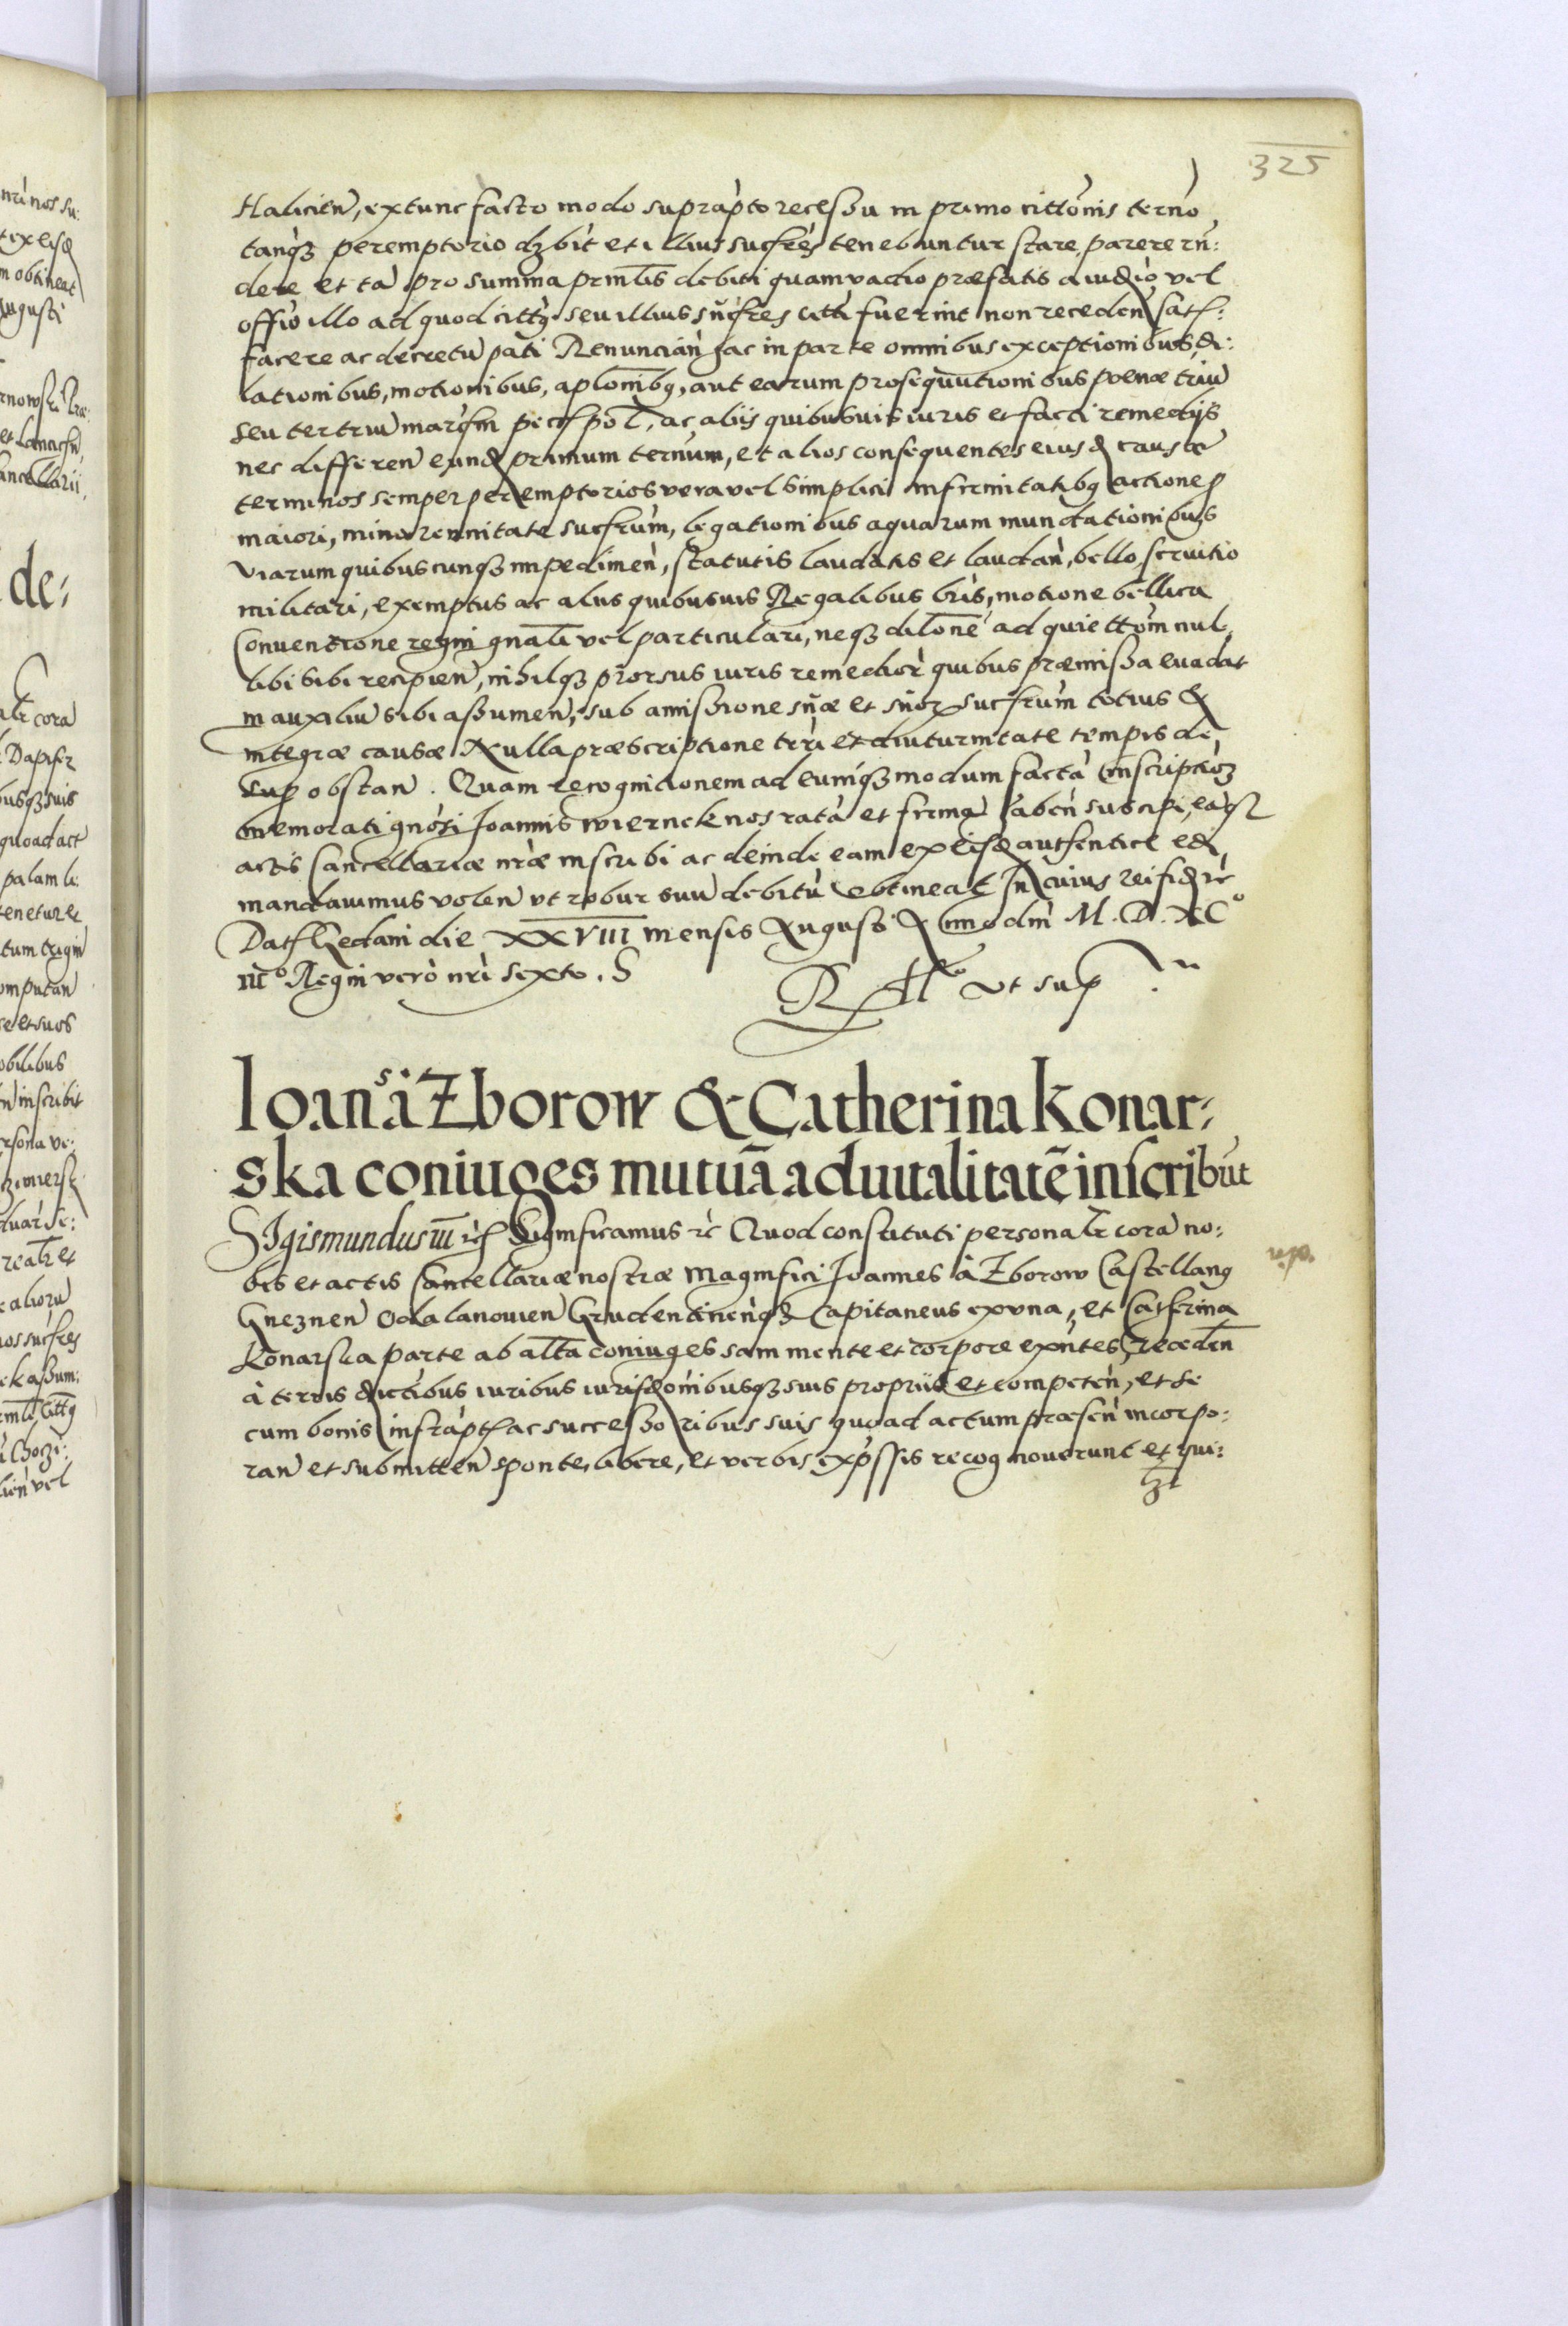 325
Halicien, extunc facto modo suprapto recessu in primo cittonis terno
tanqz peremptorio dzbit et illius sucfres tenebuntur stare, parere rn:
dere et ta pro summa prinlis debiti quam vadio præfatis a iudio vel
offio illo ad quod cittq seu illius sucfres citti fuerint non receden satf:
facere ac decretu pati Renuncian hac in parte omnibus exceptionibus, di:
lationibus, motionibus, aplonibq, aut earum prosequutionibus poenæ triu
seu tertriu marcfm pecf pol, ac aliis quibusuis iuris et facti remediis
nec differen eund primum ternum, et alios consequentes eiusd causæ
terminos semper peremptorios vera vel simplici infirmitatibq actione
maiori, minorennitate sucfrum, legationibus aquarum inundationibus
viarum quibuscunqz impedimen, statutis laudatis et laudan, bello seruitio
militari, exemptis ac aliis quibusuis Regalibus lris, motione bellica
Conuentione regni gnali vel particulari, neqz dilone ad quiettom nul
libi sibi recipien, nihilqz prorsus iuris remedior quibus præmissa euadat
in auxiliu sibi assumen, sub amissione suæ et suor sucfrum totius &
integræ causæ Nulla præscriptione terri et diuturnitate tempis de
sup obstan. Quam recognitionem ad eumqz modum facta Inscriptioz
memorati gnosi Joannis Wiernek nos rata et firma haben suscipi, eaqz
actis Cancellariæ nræ inscribi ac deinde eam ex eisd autfentice edi
mandauimus volen vt robur suu debitu obtineat In cuius rei fid rc
Datf Gedani die XXVIII mensis Augusti Anno dni M. D. XCo
IIIo Regni vero nri sexto. S
R Ao vt sup
Ioans à Zborow & Catherina Konar:
ska coniuges mutuā aduitalitatē inscribūt
Sigismundus III rcf Significamus rc Quod constituti personalr cora no:
bis et actis Cancellariæ nostræ Magnifici Joannes à Zborow Castellanq
Gneznen Odalanouien Grudentinenqz Capitaneus ex vna, et Catfrina
Konarska parte ab alta coniuges sani mente et corpore exntes, receden
à terris dictibus iuribus iurisdonibusqz suis propriis et competen, et se
cum bonis infraptf ac successoribus suis quoad actum præsen incorpo:
ran et submitten sponte, libere, et verbis expssis recognouerunt et qui:
lzt